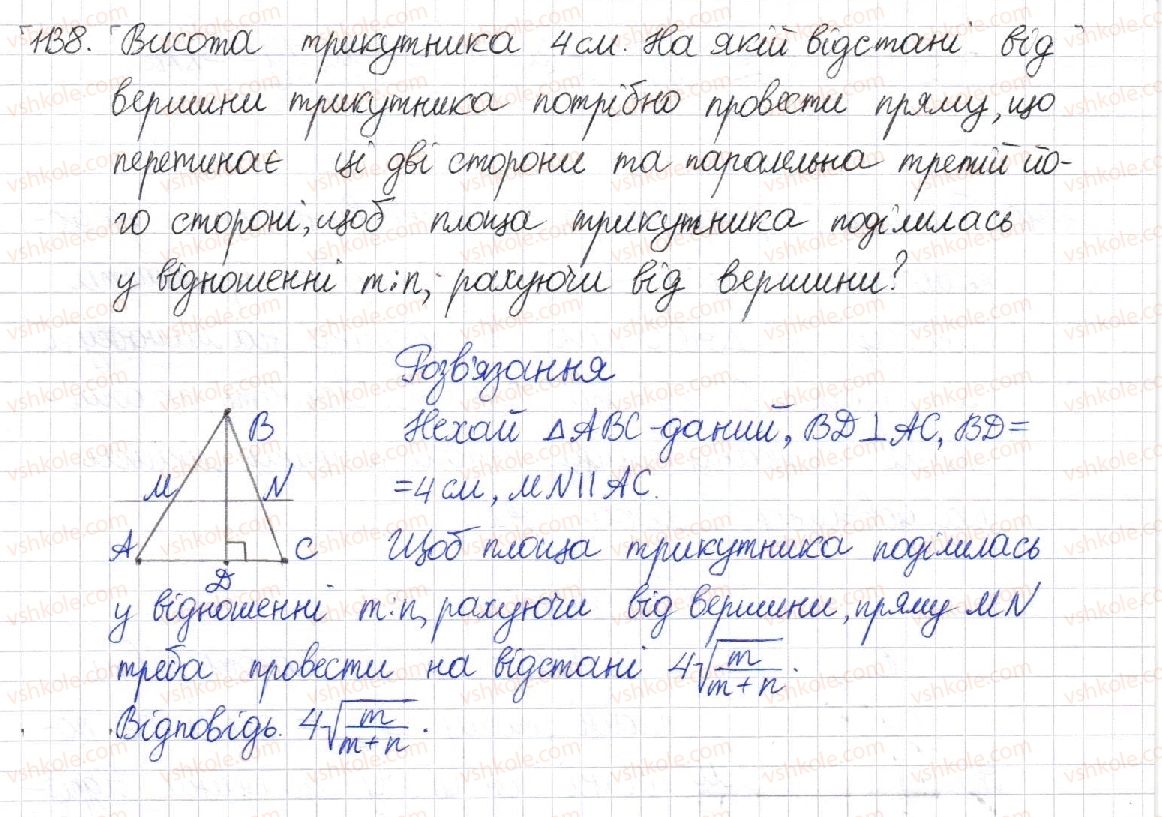 1138. Висота трикутника 4 см. На якій відстані від
вершини трикутника потрібно провести пряму, що
перетинає ці дві сторони та паралельна третій йо-
го стороні, щоб площа трикутника поділилась
у відношенні m:n, рахуючи від вершини?
Розв'язання
Нехай △ABC - даний, BD⊥AC, BD=
=4 см, MN||AC.
B
M N
A C
D
Щоб площа трикутника поділилась
у відношенні m:n, рахуючи від вершини, пряму MN
треба провести на відстані 4√(m/(m+n)).
Відповідь. 4√(m/(m+n)).